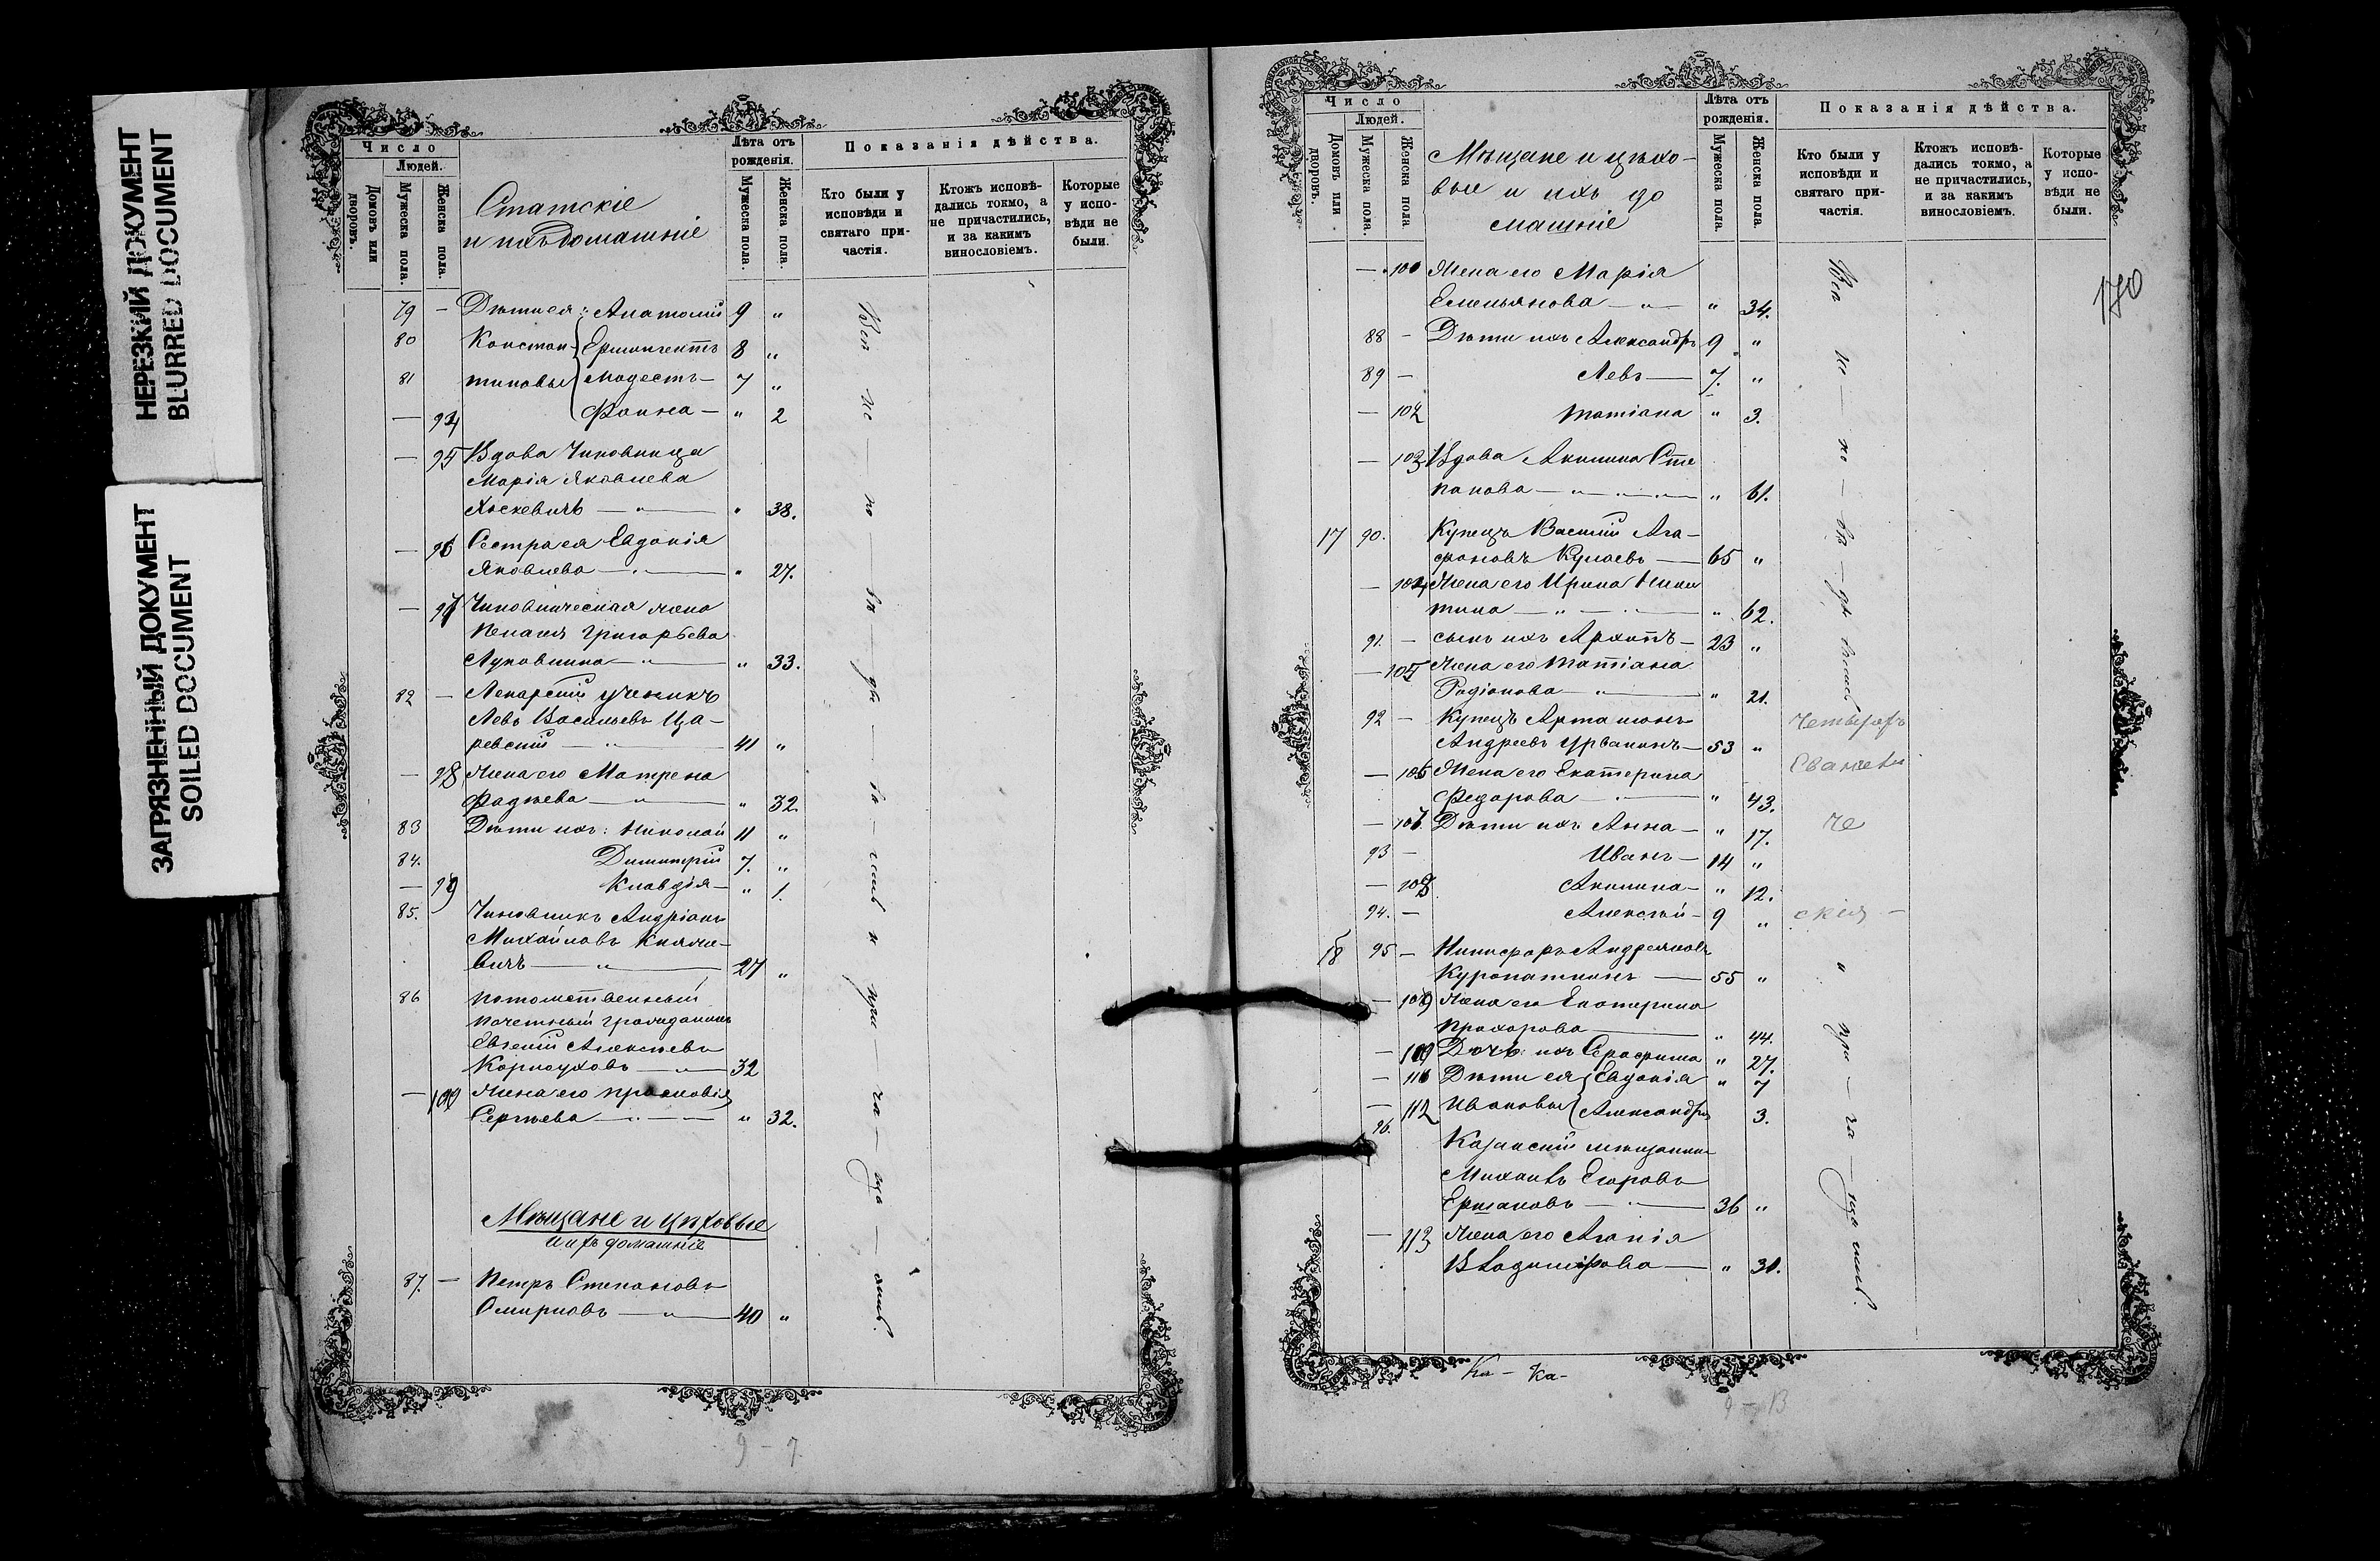 НЕРЕЗКИЙ ДОКУМЕНТ
BLURRED DOCUMENT
ЗАГРЯЗНЕННЫЙ ДОКУМЕНТ
SOILED DOCUMENT
Число
Людей.
Домовъ или дворовъ.
Мужеска пола.
Женска пола.
Статскіе
и ихъ домашніе
Лѣта отъ рожденія.
Мужеска пола.
Женска пола.
Показанія дѣйства.
Кто были у исповѣди и святаго причастія.
Ктожъ исповѣдались токмо, а не причастились, и за какимъ винословіемъ.
Которые у исповѣди не были.
79 — Дѣти ея: Анатолій 9 „
80 Констан- 8 „
81 тиновы Модестъ — 7 „
— 94 Фаина — „ 2
— 95 Вдова Чиновница
Марія Яковлева
— „ — „ 38.
— 96 Сестра ея Евдокія
Яковлева — „ — „ 27.
— 97 Чиновническая жена
Пелагея Григорьева
— „ — „ 33.
82 — Лекарскій ученикъ
Левъ Васильевъ Ца-
ревскій — „ — 41 „
— 98 Жена его Матрена
Фадѣева — „ — „ 32.
83 Дѣти ихъ: Николай 11 „
84. Димитрій 7. „
— 99 Клавдія — „ 1.
85. Чиновникъ Андріанъ
Михайловъ Княже-
вичъ — „ — 27 „
86 Потомственный
почетный гражданинъ
Евгеній Алексѣевъ
Корноуховъ — „ — 32
— 100 Жена его Прасковія
Сергѣева — „ — „ 32.
Мѣщане и цѣховые
и ихъ домашніе
87. — Петръ Степановъ
Смирновъ — „ — 40 „
Всѣ ис — по — вѣ — да — ва — лись и при — ча — ща — лись.
9 – 7
Число
Людей.
Домовъ или дворовъ.
Мужеска пола.
Женска пола.
Мѣщане и цѣхо-
вые и ихъ до
машніе
Лѣта отъ рожденія.
Мужеска пола.
Женска пола.
Показанія дѣйства.
Кто были у исповѣди и святаго причастія.
Ктожъ исповѣдались токмо, а не причастились, и за какимъ винословіемъ.
Которые у исповѣди не были.
170
— 101 Жена его Марія
Емельянова — „ — „ 34.
88 — Дѣти ихъ Александръ 9 „
89 — Левъ — 7. „
— 102 Татіана „ 3.
— 103 Вдова Акилина Сте
панова — „ — „ — „ 61.
17 90. Купецъ Василій Ага-
фоновъ — 65 „
— 104 Жена его Ирина Ники
тина — „ — „ 62.
91. — сынъ ихъ Архипъ — 23 „
— 105 Жена его Татіана
Родіонова — „ — „ 21.
92 — Купецъ Артамонъ
Андреевъ Урванинъ — 53 „
— 106 Жена его Екатерина
Федорова — „ — „ 43.
— Дѣти ихъ Анна — „ 17.
93 — Иванъ — 14 „
— 108 Акилина — „ 12.
94. — Алексѣй — 9 „
18 95 — Никифоръ Андреяновъ
Куропаткинъ — 55 „
— 109 Жена его Екатерина
Прохорова — „ 44.
— Дочь ихъ Серафима „ 27.
— Дѣти ея Евдокія „ 7
— 112 Ивановы Александра 3.
96. Казанскій мѣщанинъ
Михаилъ Егоровъ
Ермаковъ — „ — 36 „
— 113 Жена его Агапія
Владимірова — „ 31.
Всѣ ис — по — вѣ — да лись и при — ча — ща лись.
Четыре
Евангелі
че
скія —
Ка – Ка-
9 – В